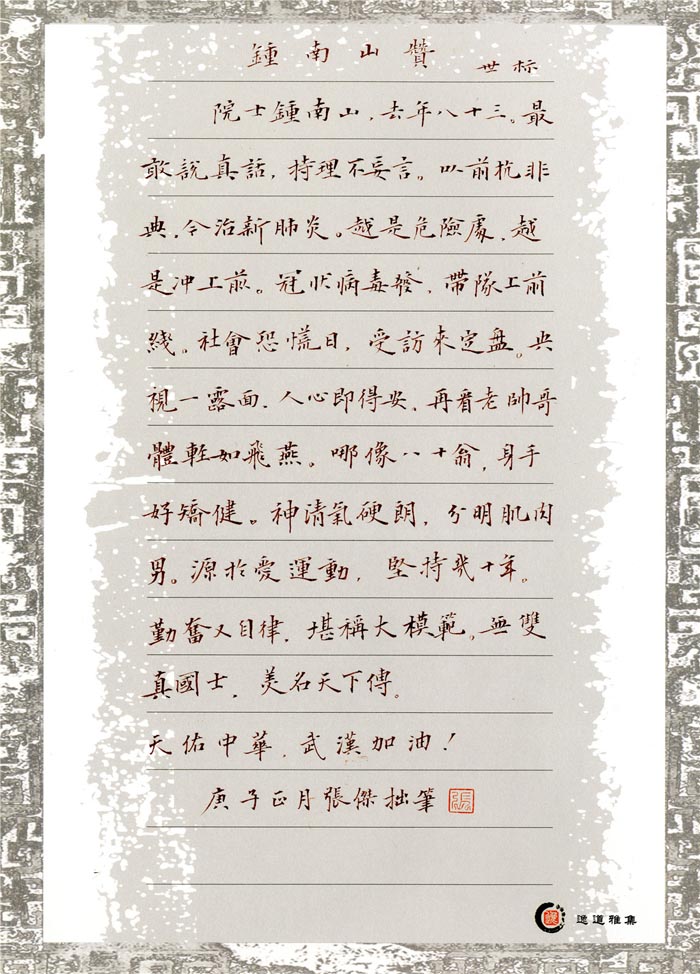 鍾南山贊 世标
院士鍾南山，去年八十三。最
敢說真話，持理不妄言。以前抗非
典，今治新肺炎。越是危險處，越
是冲上前。冠狀病毒發，帶隊上前
綫。社會恐慌日，受訪來定盘。央
視一露面，人心即得安。再看老帥哥
體輕如飛燕。哪像八十翁，身手
好矯健。神清氣硬朗，分明肌肉
男。源於愛運動，堅持幾十年。
勤奮又自律，堪稱大模範。無雙
真國士，美名天下傳。
天佑中華，武漢加油！
庚子正月張傑拙筆 張
逸道雅集